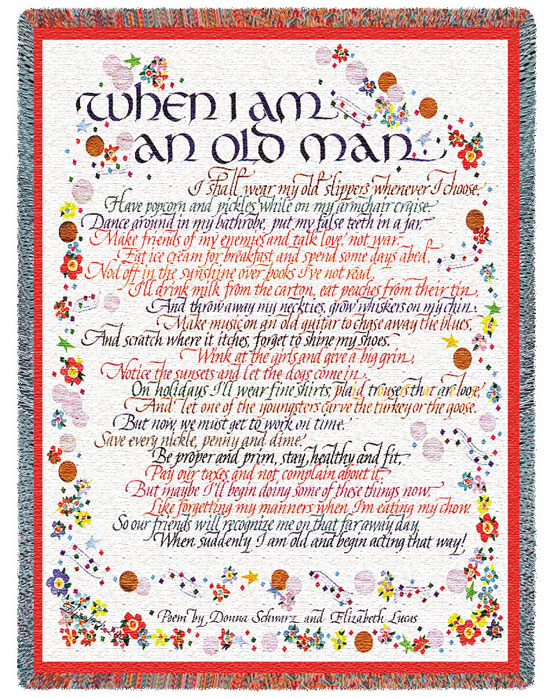 When I am
an old man
I shall wear my old slippers whenever I choose,
Have popcorn and pickles while on my armchair cruise
Dance around in my bathrobe, put my false teeth in a jar
Make friends of my enemies and talk love, not war
Eat ice cream for breakfast and spend some days abed,
Nod off in the sunshine over books I've not read,
I'll drink milk from the carton, eat peaches from their tin,
And throw away my neckties, grow whiskers on my chin
Make music on an old guitar to chase away the blues,
And scratch where it itches, forget to shine my shoes.
Wink at the girls and give a big grin,
Notice the sunsets and let the dogs come in.
On holidays I'll wear fine shirts, plaid trousers that are loose
And let one of the youngsters carve the turkey or the goose.
But now, we must get to work on time,
Save every nickle, penny and dime,
Be proper and prim, stay healthy and fit,
Pay our taxes and not complain about it,
But maybe I'll begin doing some of these things now,
Like forgetting my manners when I'm eating my chow.
So our friends will recognize me on that far away day,
When suddenly I am old and begin acting that way!
Poem by Donna Schwarz and Elizabeth Lucas